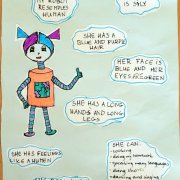 MY ROBOT
RESEMBLES
HUMAN
IS SYLV
SHE HAS A
BLUE AND PURPLE
HAIR
HER FACE IS
BLUE AND HER
EYES ARE GREEN
SHE HAS A LONG
HANDS AND LONG
LEGS
SHE HAS FEELINGS
LIKE A HUMAN
SHE CAN:
- cooking
- doing my homework
- speaking many languages
- dancing and singing